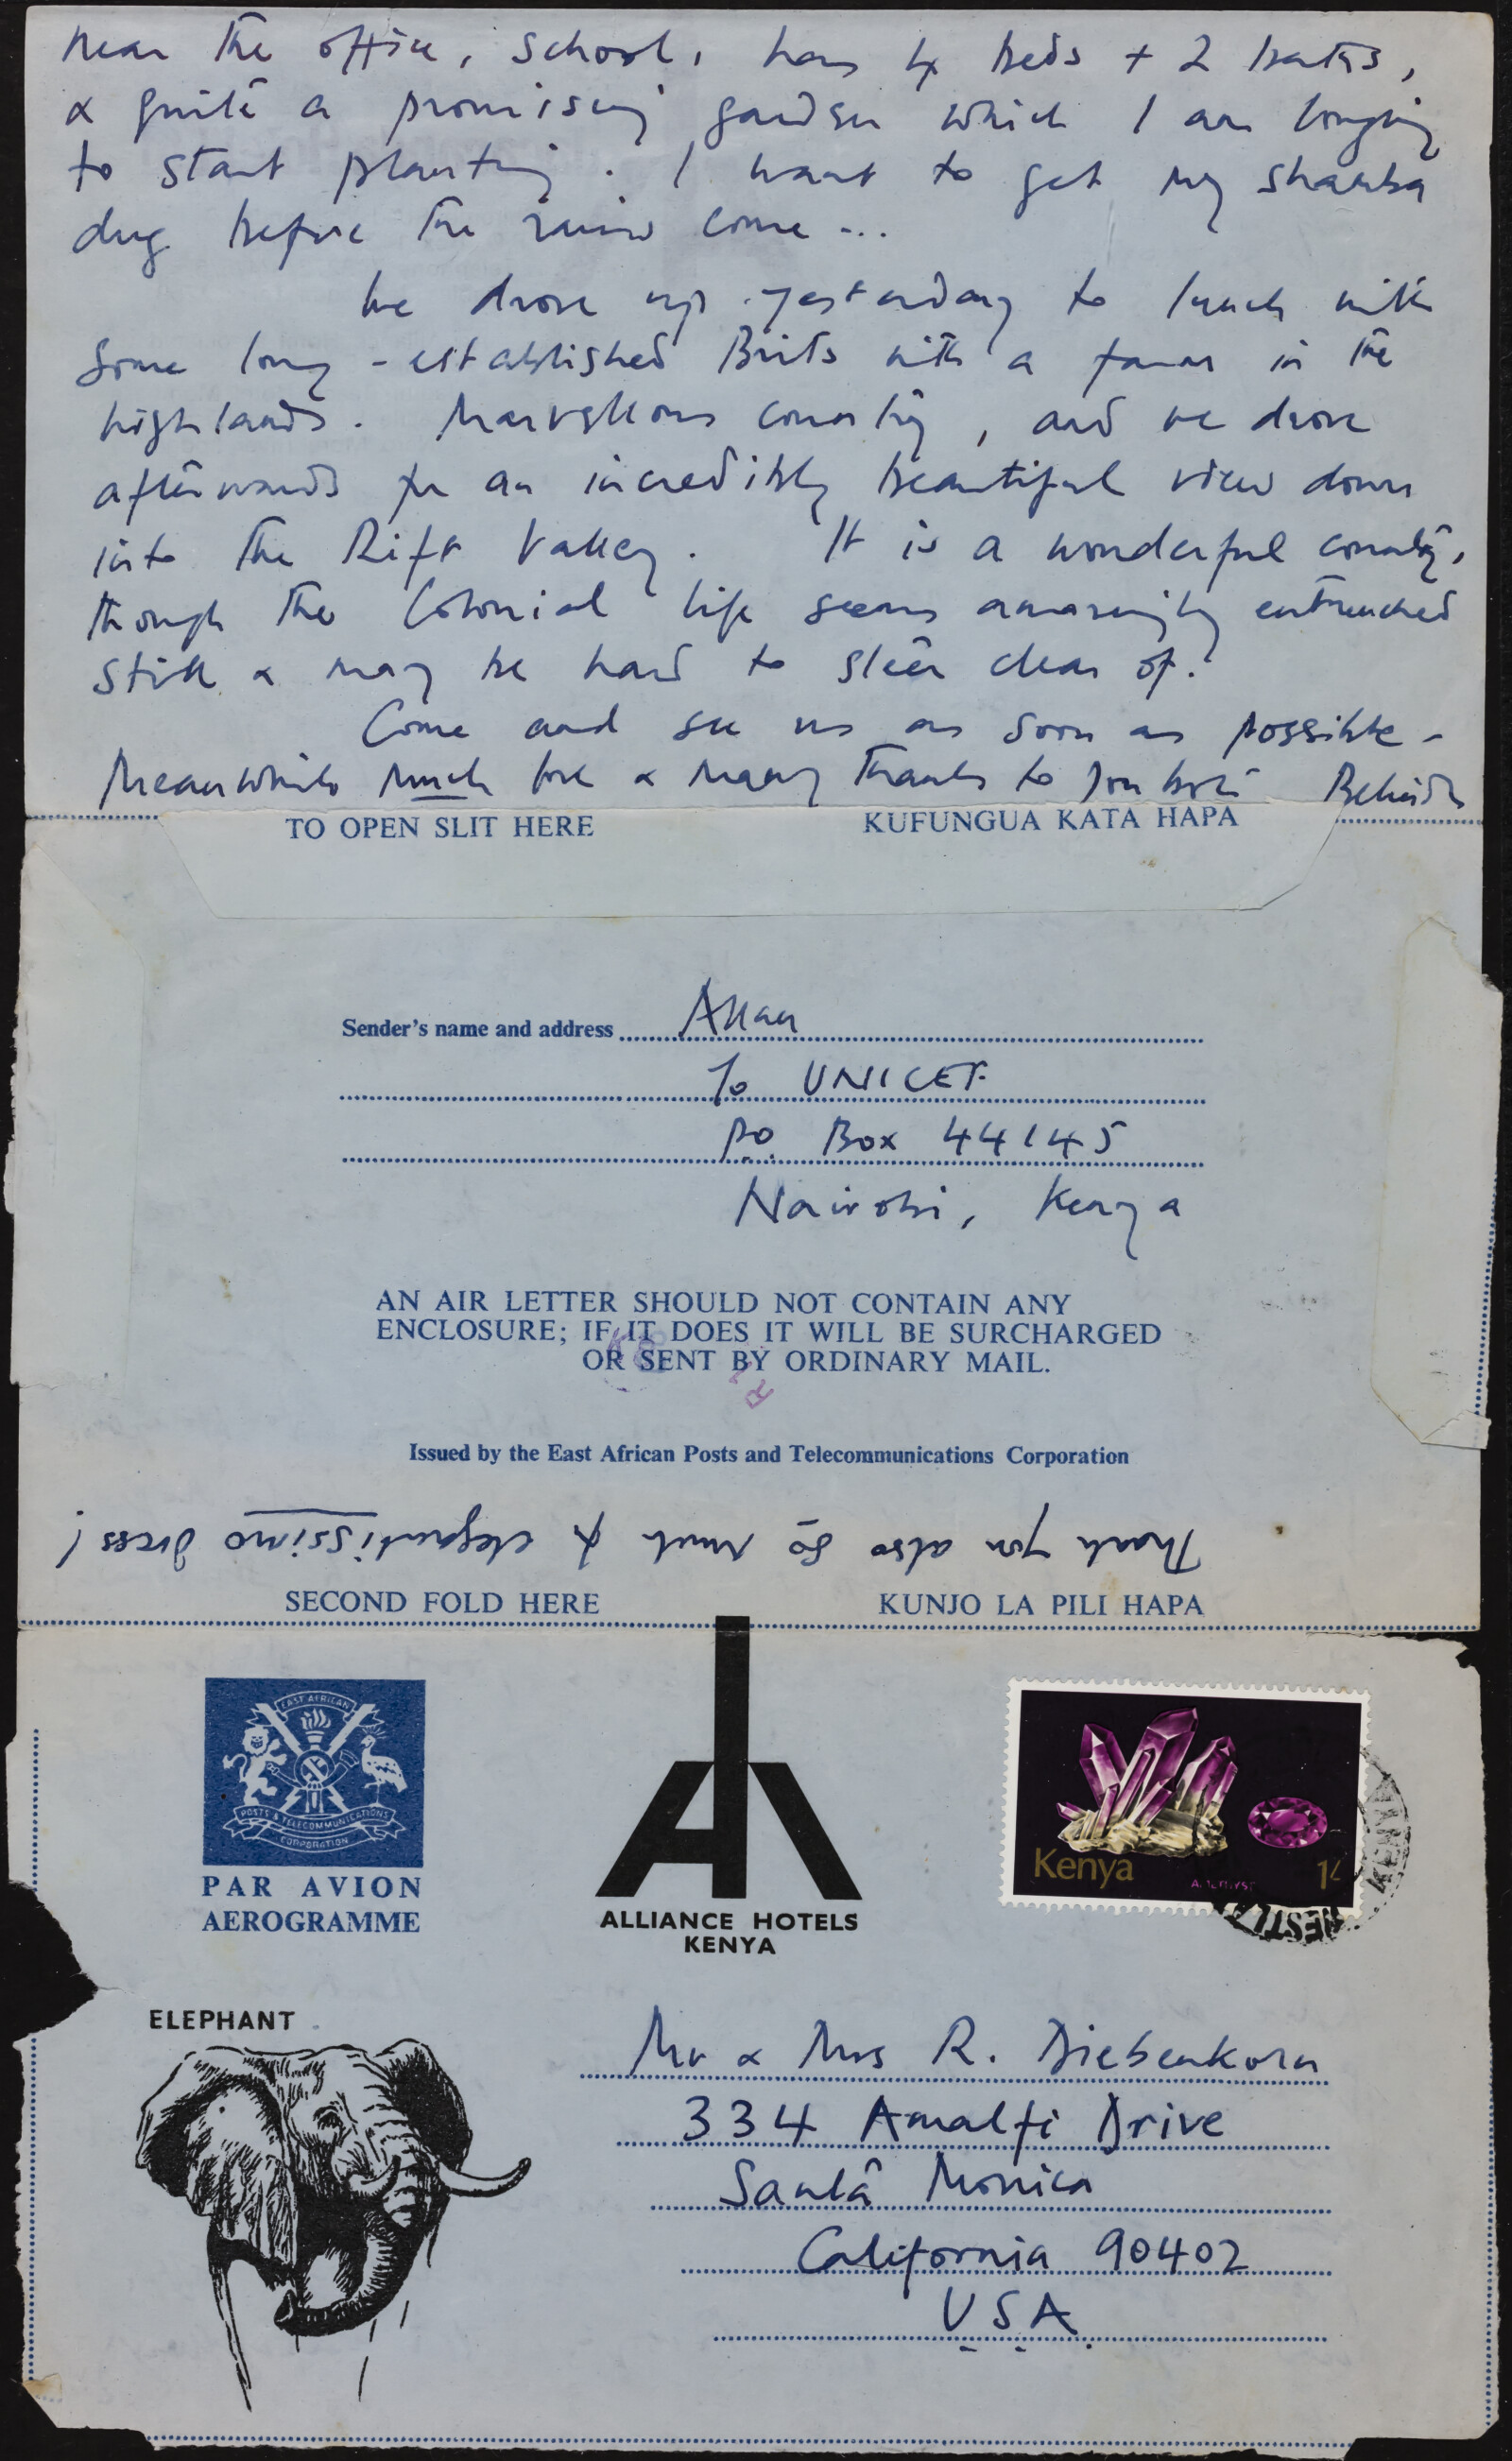 near the office, school, has 4 beds + 2 baths,
& quite a promising garden which I am longing
to start planting. I want to get my shamba
dug before the rains come ...
We drove up yesterday to lunch with
some long-established Brits with a farm in the
highlands. Marvellous country, and we drove
afterwards for an incredibly beautiful view down
into the Rift Valley. It is a wonderful country,
though the Colonial life seems amazingly entrenched
still & may be hard to steer clear of.
Come and see us as soon as possible -
Meanwhile much love & many thanks to you both
TO OPEN SLIT HERE KUFUNGUA KATA HAPA
Sender's name and address Allan
c/o UNICEF
PO Box 44145
Nairobi, Kenya
AN AIR LETTER SHOULD NOT CONTAIN ANY
ENCLOSURE; IF IT DOES IT WILL BE SURCHARGED
OR SENT BY ORDINARY MAIL.
Issued by the East African Posts and Telecommunications Corporation
Thank you also so much for elegantissimo dress!
SECOND FOLD HERE KUNJO LA PILI HAPA
EAST AFRICAN
POSTS & TELECOMMUNICATIONS
CORPORATION
PAR AVION
AEROGRAMME
ALLIANCE HOTELS
KENYA
Kenya AMETHYST 1/-
KENYA
ELEPHANT
Mr & Mrs R. Diebenkorn
334 Amalfi Drive
Santa Monica
California 90402
USA